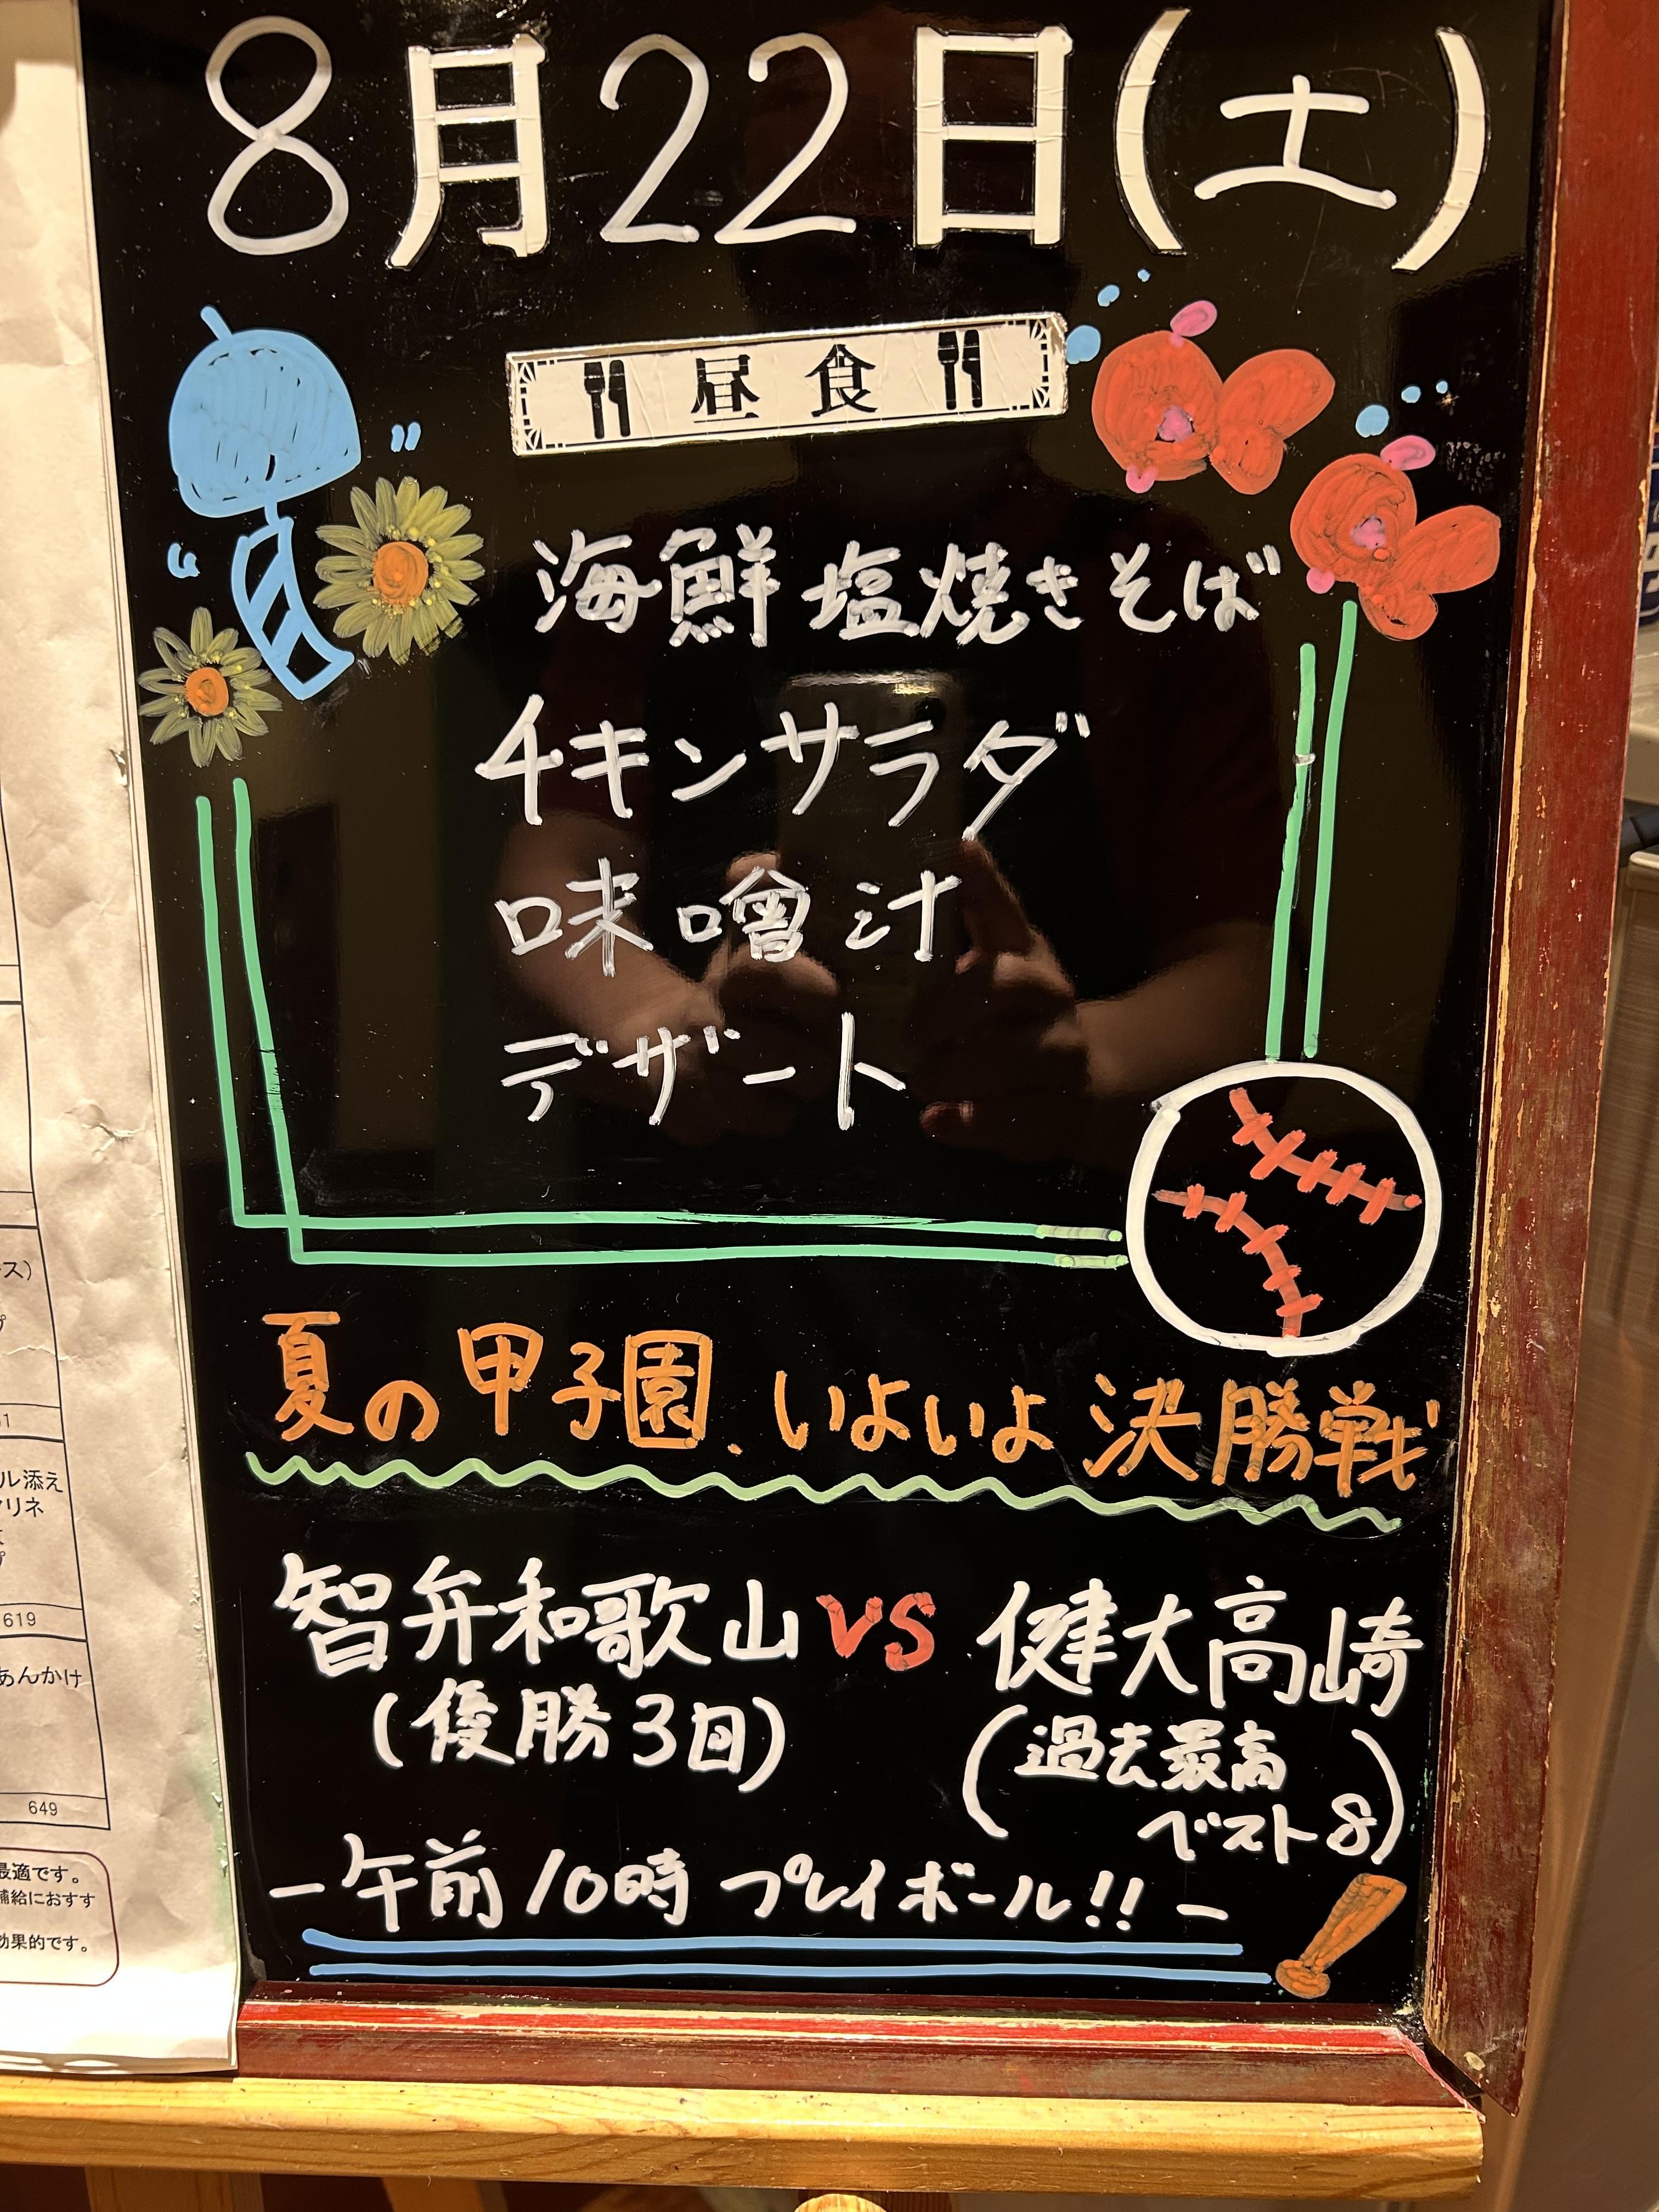 8月22日(土)
昼食
海鮮塩焼きそば
チキンサラダ
味噌汁
デザート
夏の甲子園、いよいよ決勝戦
智弁和歌山 VS 健大高崎
(優勝3回)
(過去最高
ベスト8)
－午前10時 プレイボール!!－
ス)
プ
61
ル添え
マリネ
プ
619
あんかけ
649
最適です。
補給におすす
効果的です。